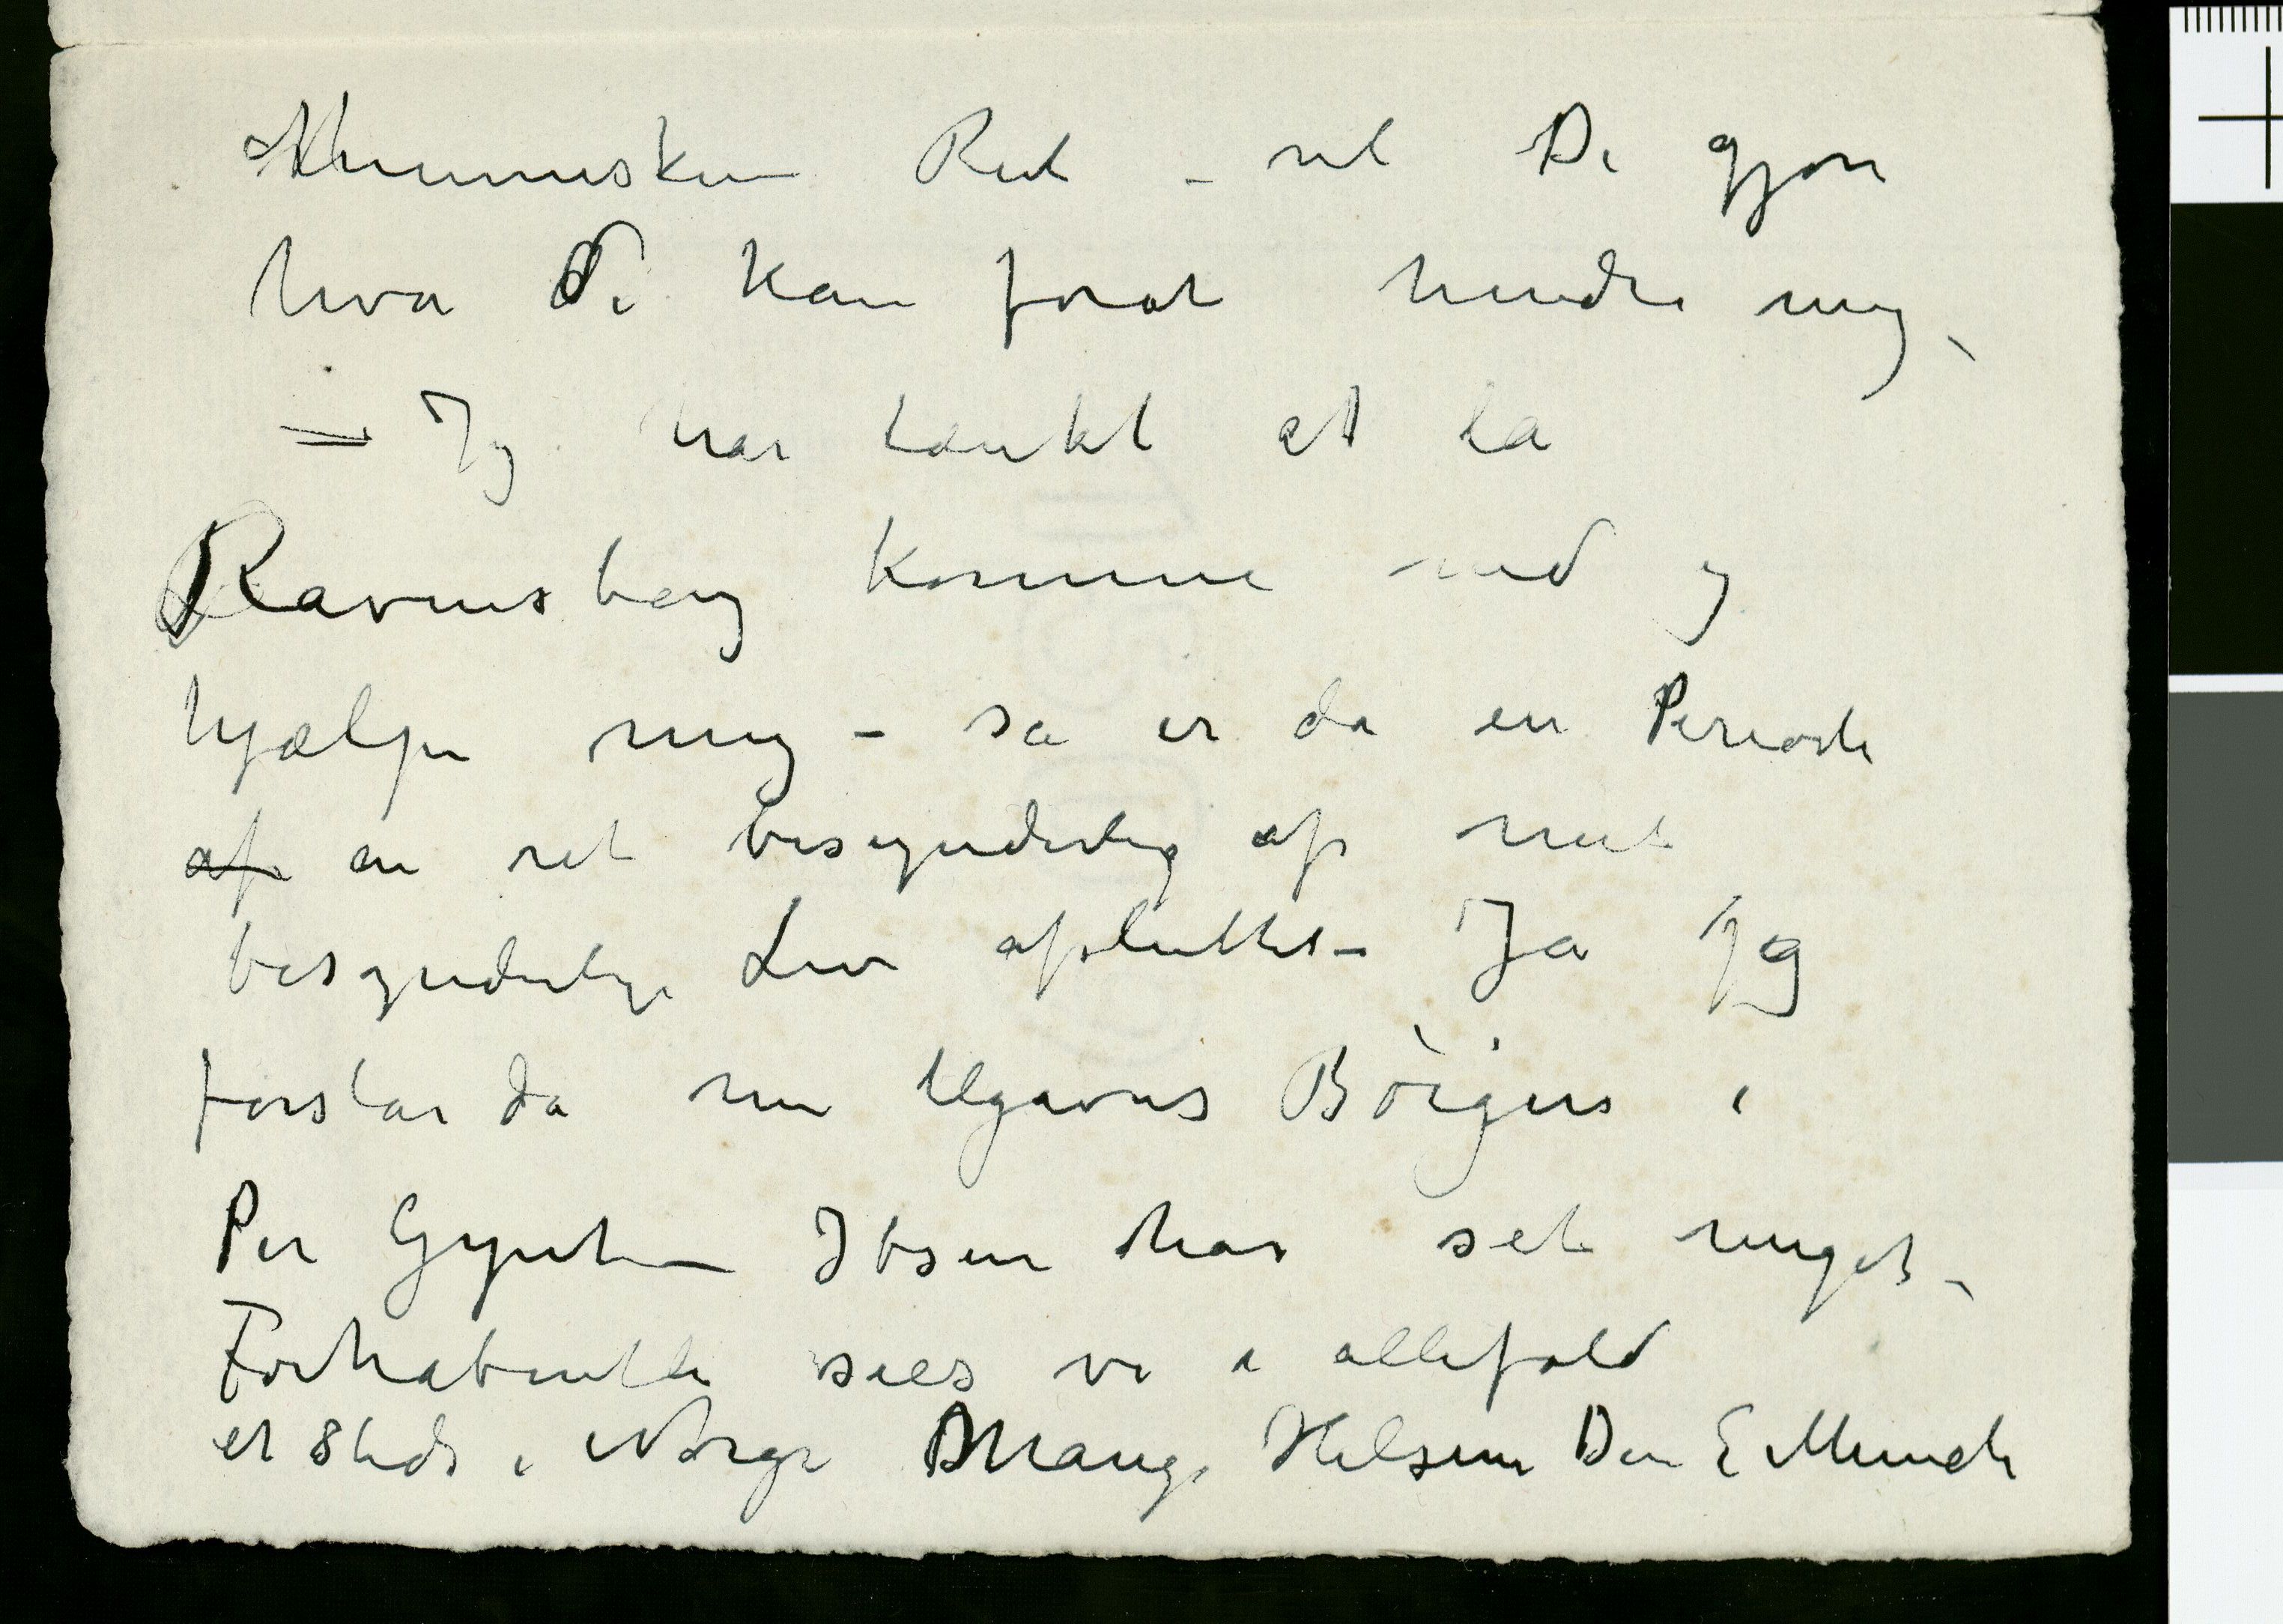 Mennesken Ret – vil De gjøre
hva De kan forat hindre mig –
– Jeg har tænkt at la
Ravensberg komme ned og
hjælpe mig – så er da en Periode
af en ret besynderlig af mit
besynderlige Liv afsluttet – Ja jeg
forstår da nu tilgavns Böigen i
Per Gynt – Ibsen har set meget –
Forhåbentli sees vi i allefald
et Steds i Norge Mange Hilsener Deres E Munch